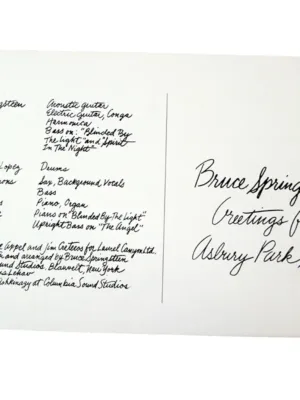 Acoustic guitar
Electric guitar, Conga
Harmonica
Bass on: "Blinded By
The Light" and "Spirit
In The Night"
Lopez Drums
Sax, Background Vocals
Bass
Piano, Organ
Piano on "Blinded By The Light"
Upright Bass on "The Angel"
Appel and Jim Cretecos for Laurel Canyon Ltd.
and arranged by Bruce Springsteen
Sound Studios, Blauvelt, New York
at Columbia Sound Studios
Bruce Spring
Greetings
Asbury Park,